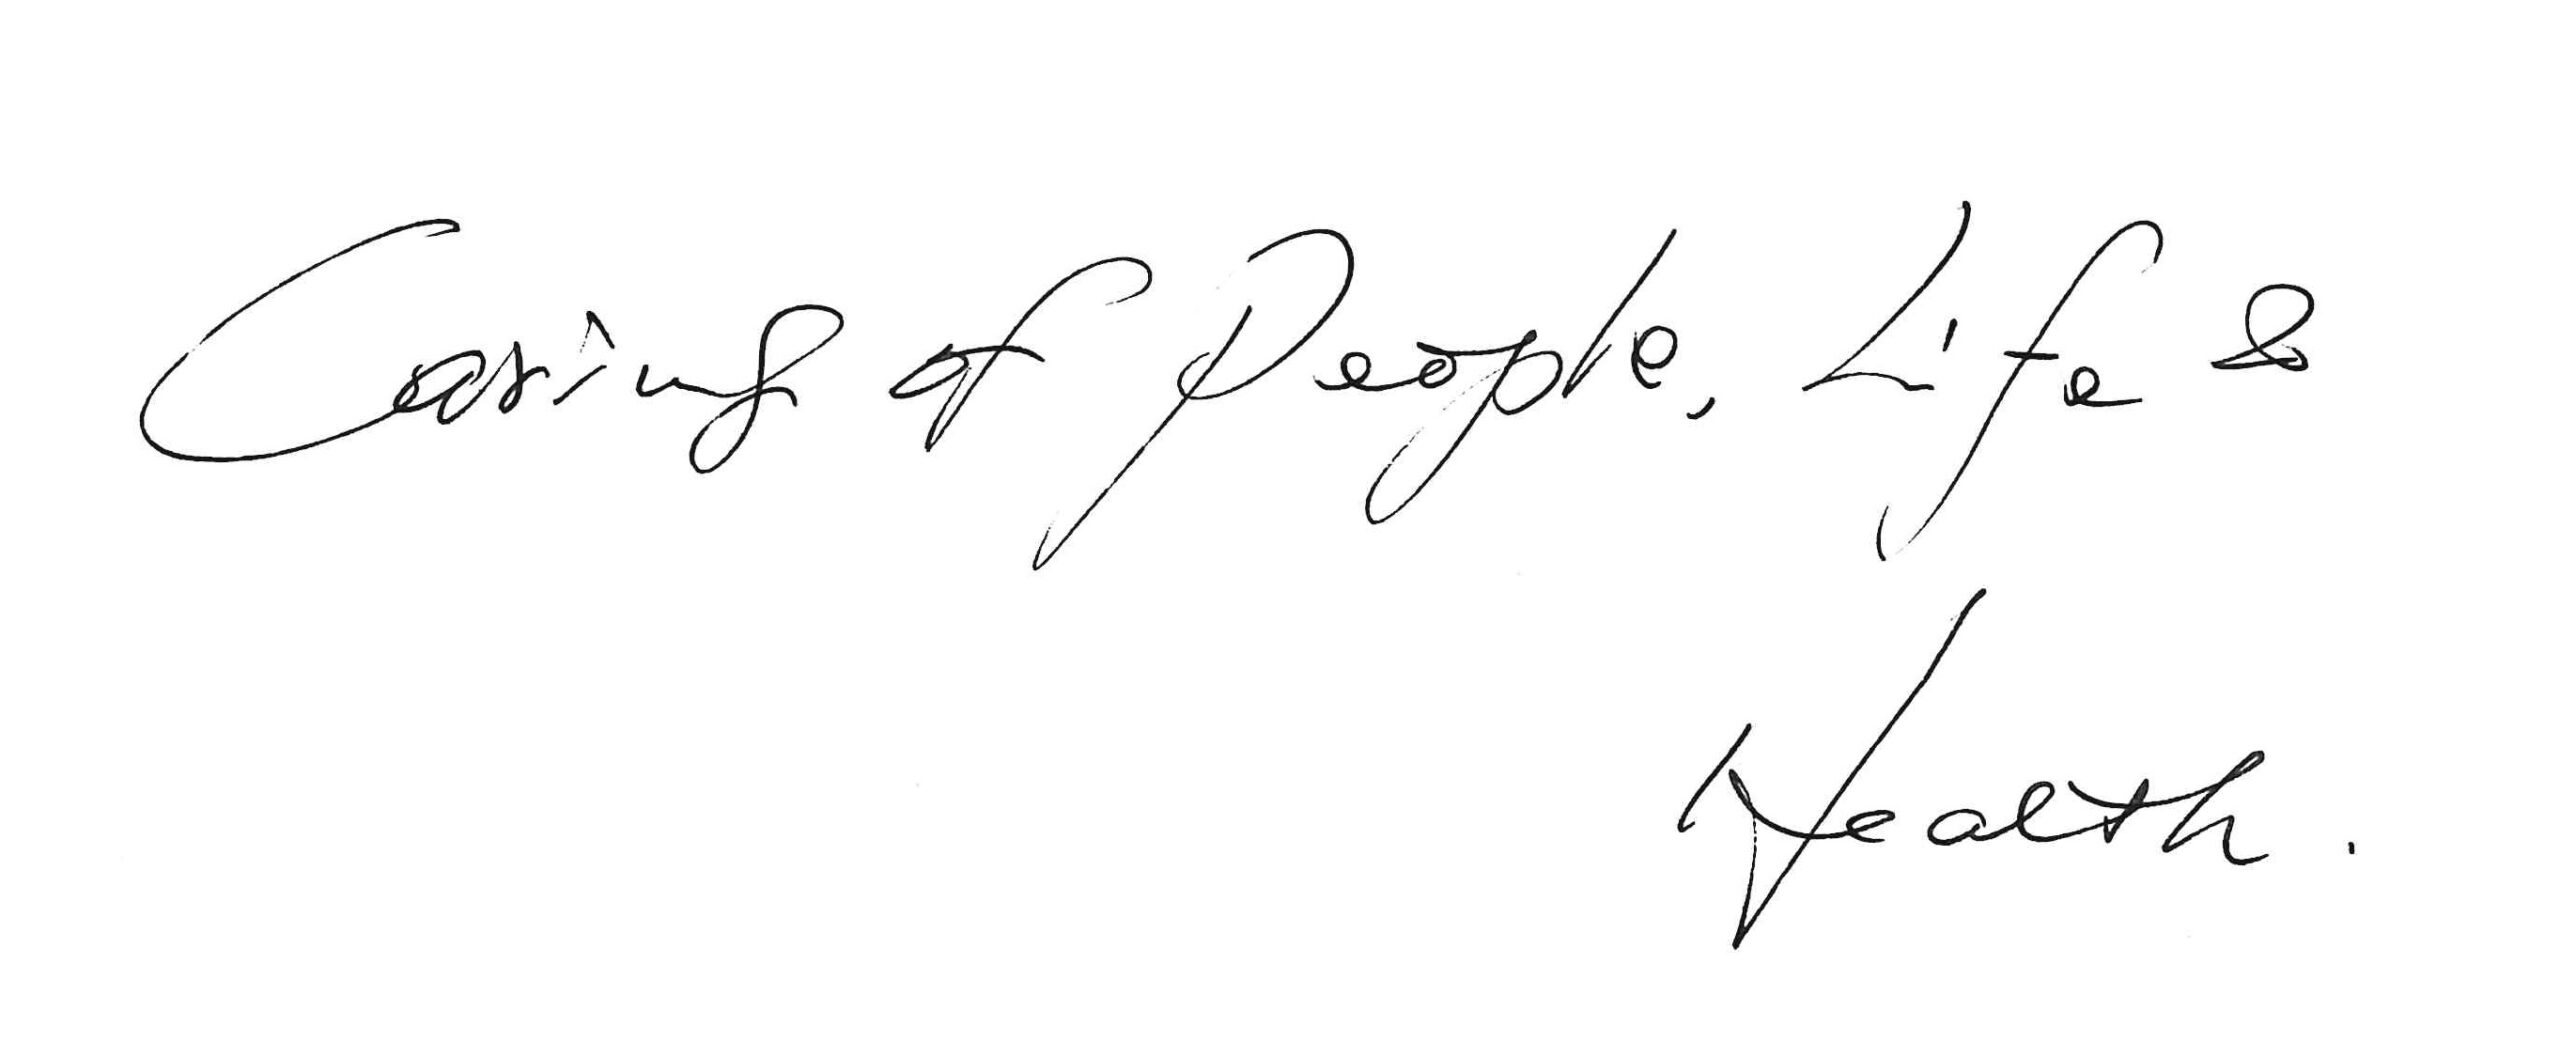 Caring of People, Life &
Health.